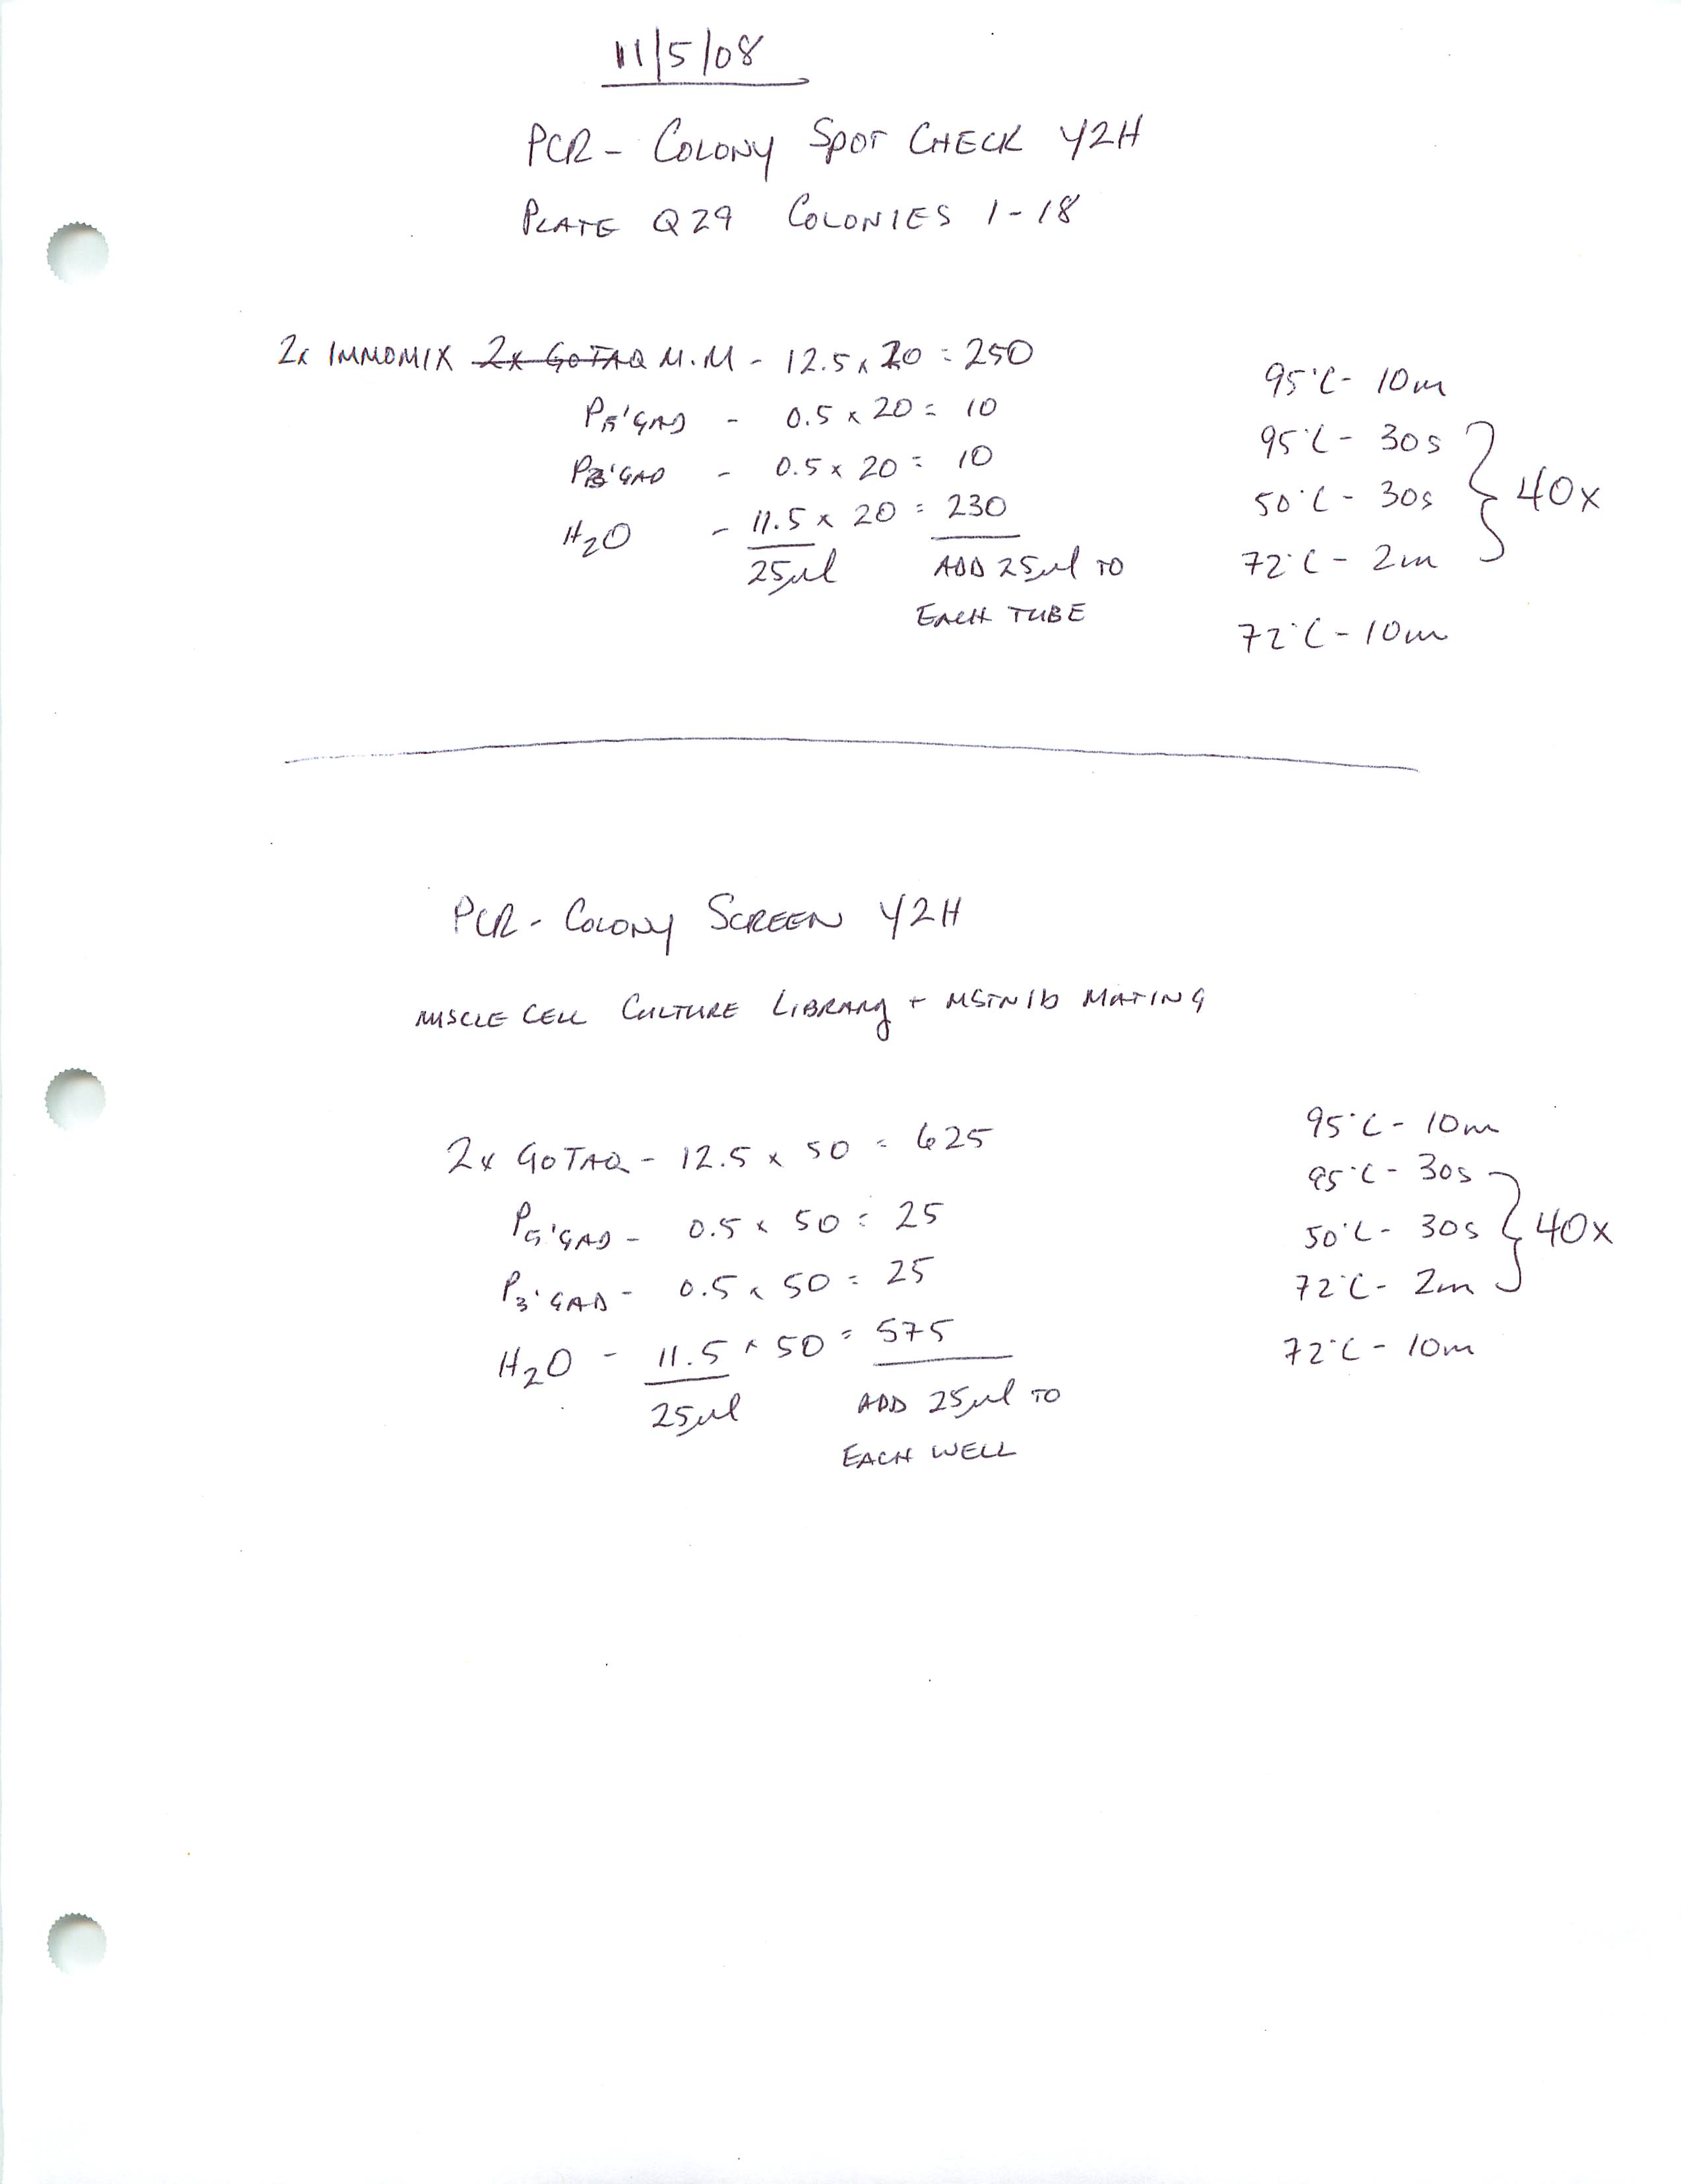 11/5/08
PCR - COLONY SPOT CHECK Y2H
PLATE Q29 COLONIES 1-18
2x IMMOMIX 2x GOTAQ M.M - 12.5 x 20 = 250
P5'GAD - 0.5 x 20 = 10
P3'GAD - 0.5 x 20 = 10
H2O - 11.5 x 20 = 230
25µl ADD 25µl TO
EACH TUBE
95°C - 10m
95°C - 30s
50°C - 30s
40x
72°C - 2m
72°C - 10m
PCR - COLONY SCREEN Y2H
MUSCLE CELL CULTURE LIBRARY + MSTN1b MATING
2x GOTAQ - 12.5 x 50 = 625
P5'GAD - 0.5 x 50 = 25
P3'GAD - 0.5 x 50 = 25
H2O - 11.5 x 50 = 575
25µl ADD 25µl TO
EACH WELL
95°C - 10m
95°C - 30s
50°C - 30s
40x
72°C - 2m
72°C - 10m